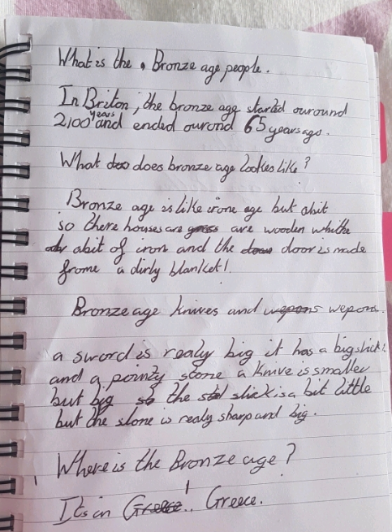 What is the Bronze age people.
In Briton, the bronze age started ouround
2,100 years and ended ourond 65 years ago.
What does bronze age lookes like?
Bronze age is like irone age but abit
so there houses are are wooden whithe
abit of iron and the door is made
frome a dirty blanket!
Bronze age knives and wepons.
a sword is realy big it has a big stick!
and a pointy stone a knive is smaller
but the stick is a bit little
but the stone is realy sharp and big.
Where is the Bronze age?
Its in Greece.